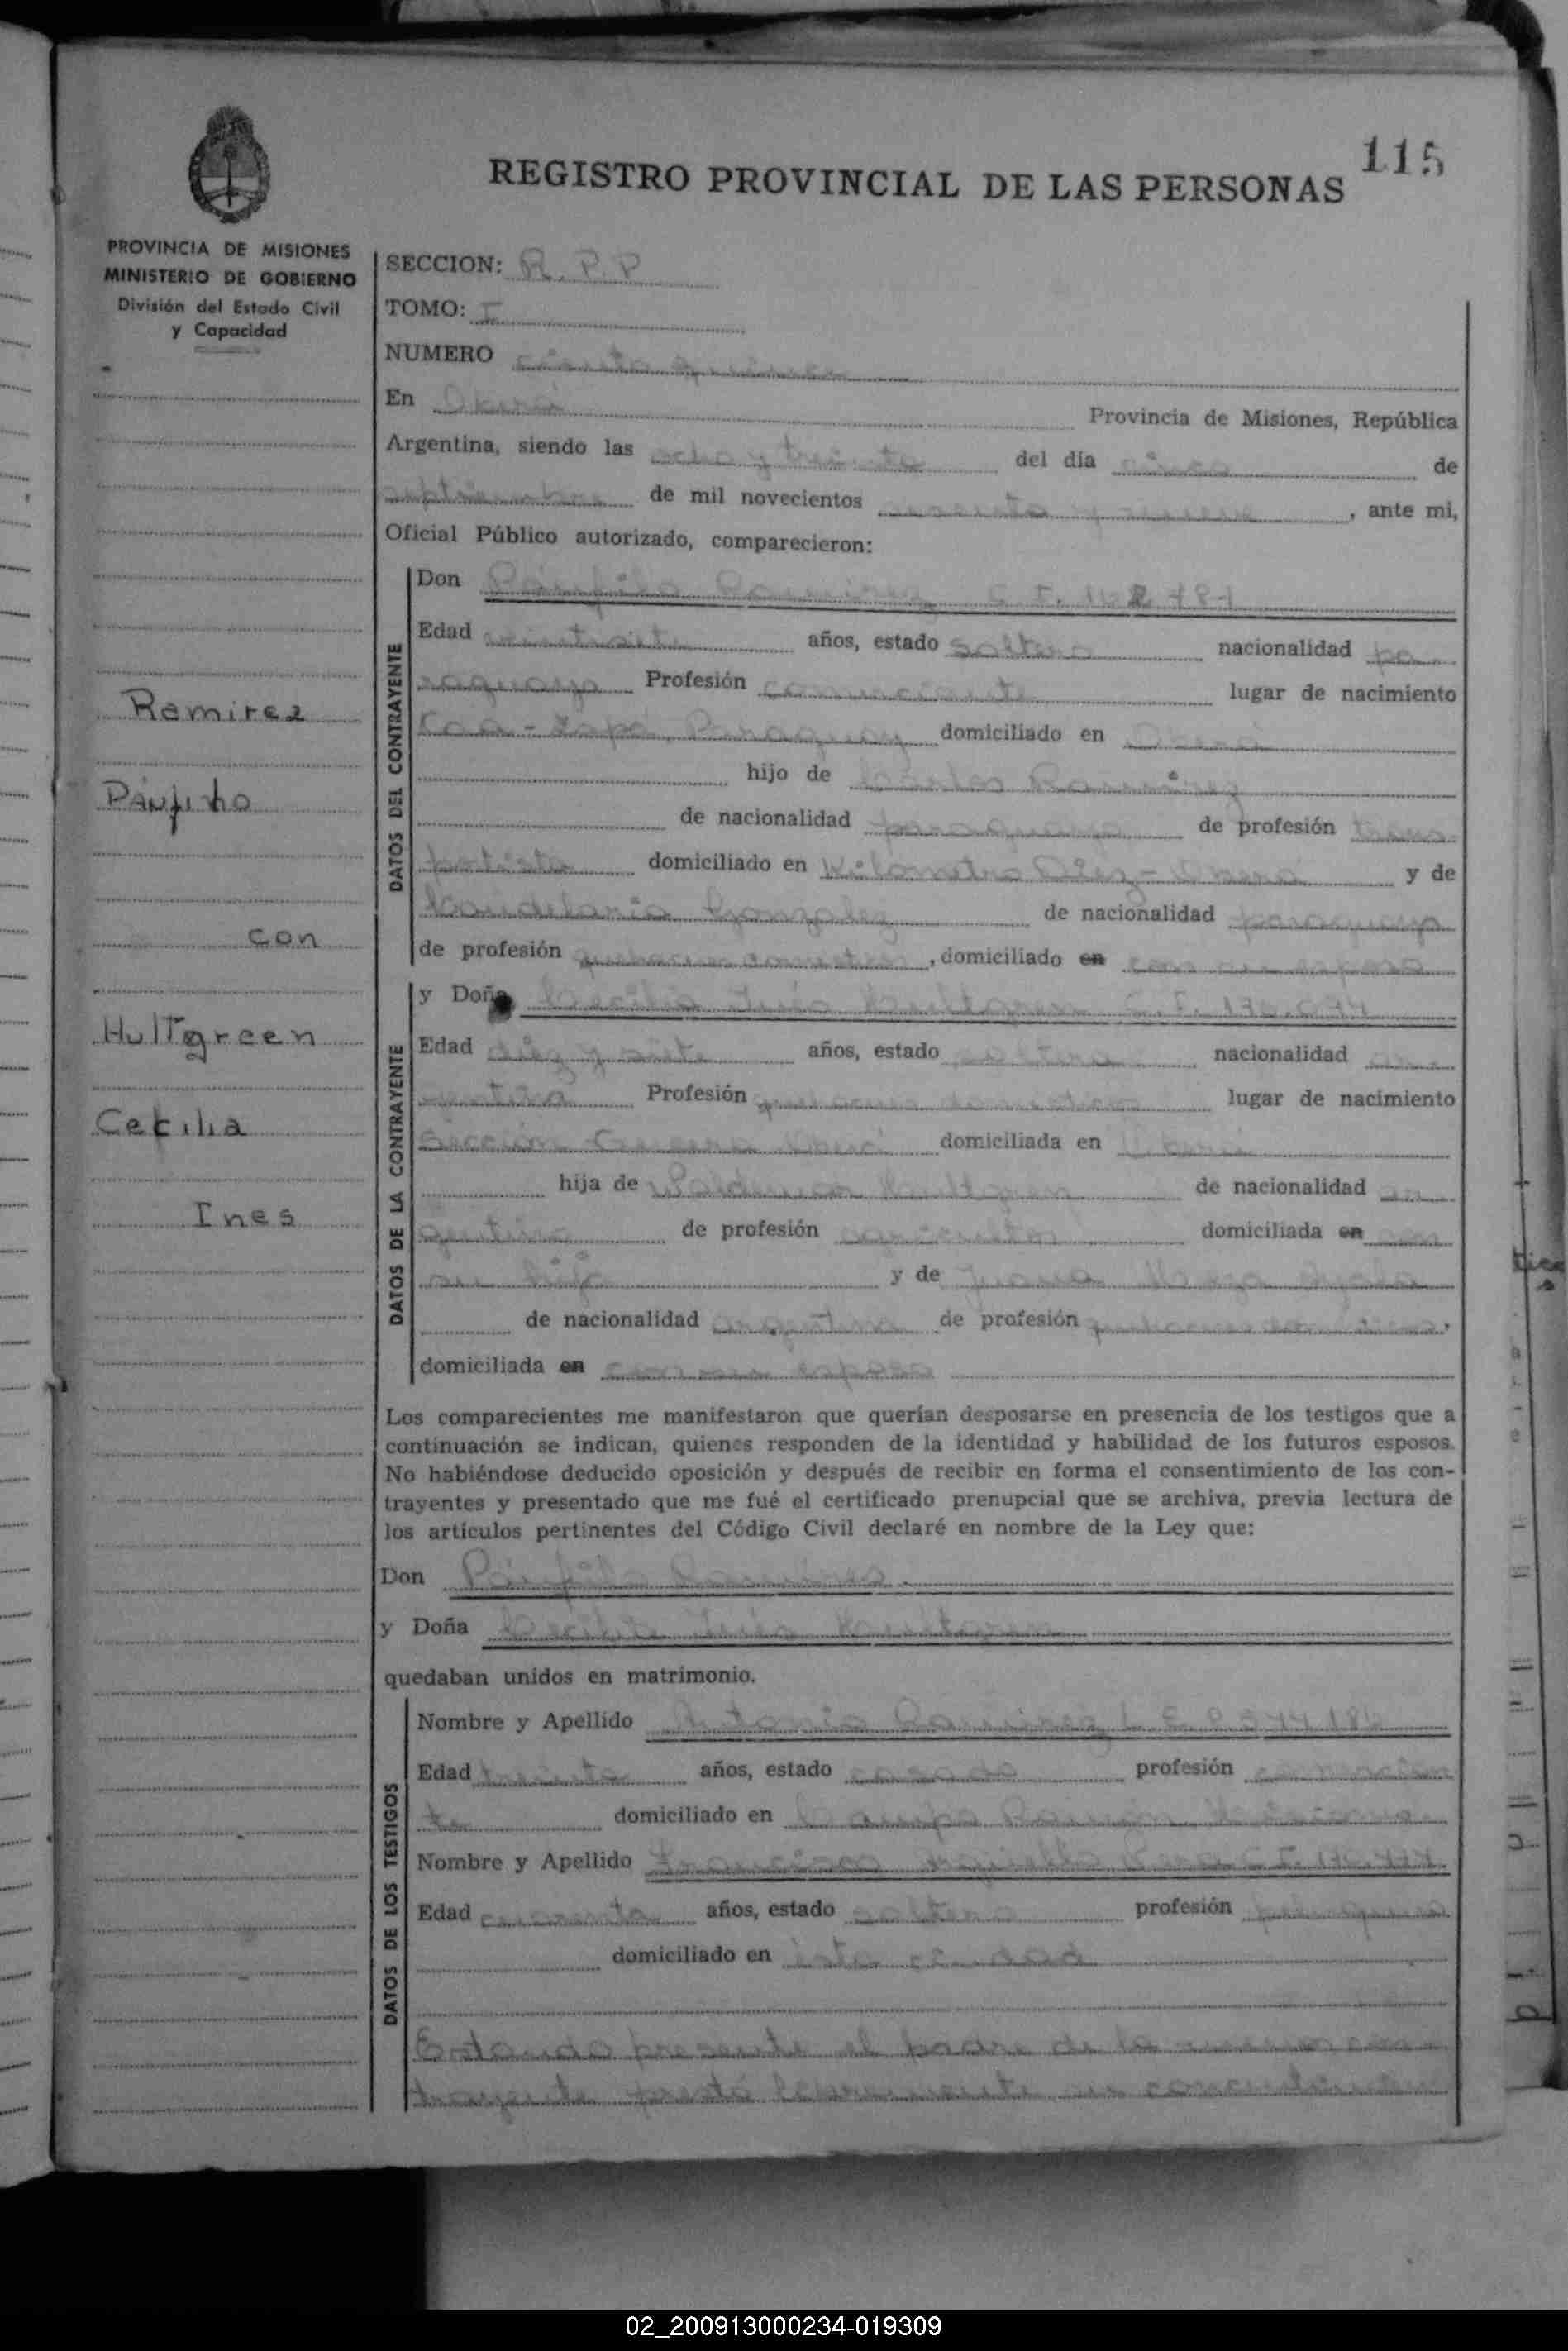 115
REGISTRO PROVINCIAL DE LAS PERSONAS
PROVINCIA DE MISIONES
MINISTERIO DE GOBIERNO
División del Estado Civil
y Capacidad
Ramirez
Pánfilo
con
Hultgreen
Cecilia
Ines
SECCION: R. P. P
TOMO: I
NUMERO ciento quince
En Oberá Provincia de Misiones, República
Argentina, siendo las ocho y treinta del día cinco de
septiembre de mil novecientos sesenta y nueve, ante mi,
Oficial Público autorizado, comparecieron:
DATOS DEL CONTRAYENTE
Don Pánfilo Ramírez C. I.
Edad veintisiete años, estado soltero nacionalidad pa-
raguaya Profesión comerciante lugar de nacimiento
Caa-Zapá, Paraguay domiciliado en Oberá
hijo de Carlos Ramírez
de nacionalidad paraguaya de profesión trans-
portista domiciliado en Kilometro Diez-Oberá y de
Candelaria Gonzalez de nacionalidad paraguaya
de profesión quehaceres domesticos, domiciliado en con su esposo
DATOS DE LA CONTRAYENTE
y Doña Cecilia Inés Hultgreen C. I.
Edad diez y siete años, estado soltera nacionalidad ar-
gentina Profesión quehaceres domesticos lugar de nacimiento
Sección Oberá domiciliada en Oberá
hija de Valdemar Hultgreen de nacionalidad ar-
gentina de profesión agricultor domiciliada en con
su hija y de Juana
de nacionalidad argentina de profesión quehaceres domesticos,
domiciliada en con su esposo
Los comparecientes me manifestaron que querían desposarse en presencia de los testigos que a
continuación se indican, quienes responden de la identidad y habilidad de los futuros esposos.
No habiéndose deducido oposición y después de recibir en forma el consentimiento de los con-
trayentes y presentado que me fué el certificado prenupcial que se archiva, previa lectura de
los artículos pertinentes del Código Civil declaré en nombre de la Ley que:
Don Pánfilo Ramírez
y Doña Cecilia Inés Hultgreen
quedaban unidos en matrimonio.
DATOS DE LOS TESTIGOS
Nombre y Apellido Antonio Ramirez L. E.
Edad treinta años, estado casado profesión comercian-
te domiciliado en Campo Ramon Misiones
Nombre y Apellido C. I.
Edad cuarenta años, estado soltero profesión
domiciliado en esta ciudad
Estando presente el padre de la menor con-
trayente prestó su consentimiento
02_200913000234-019309